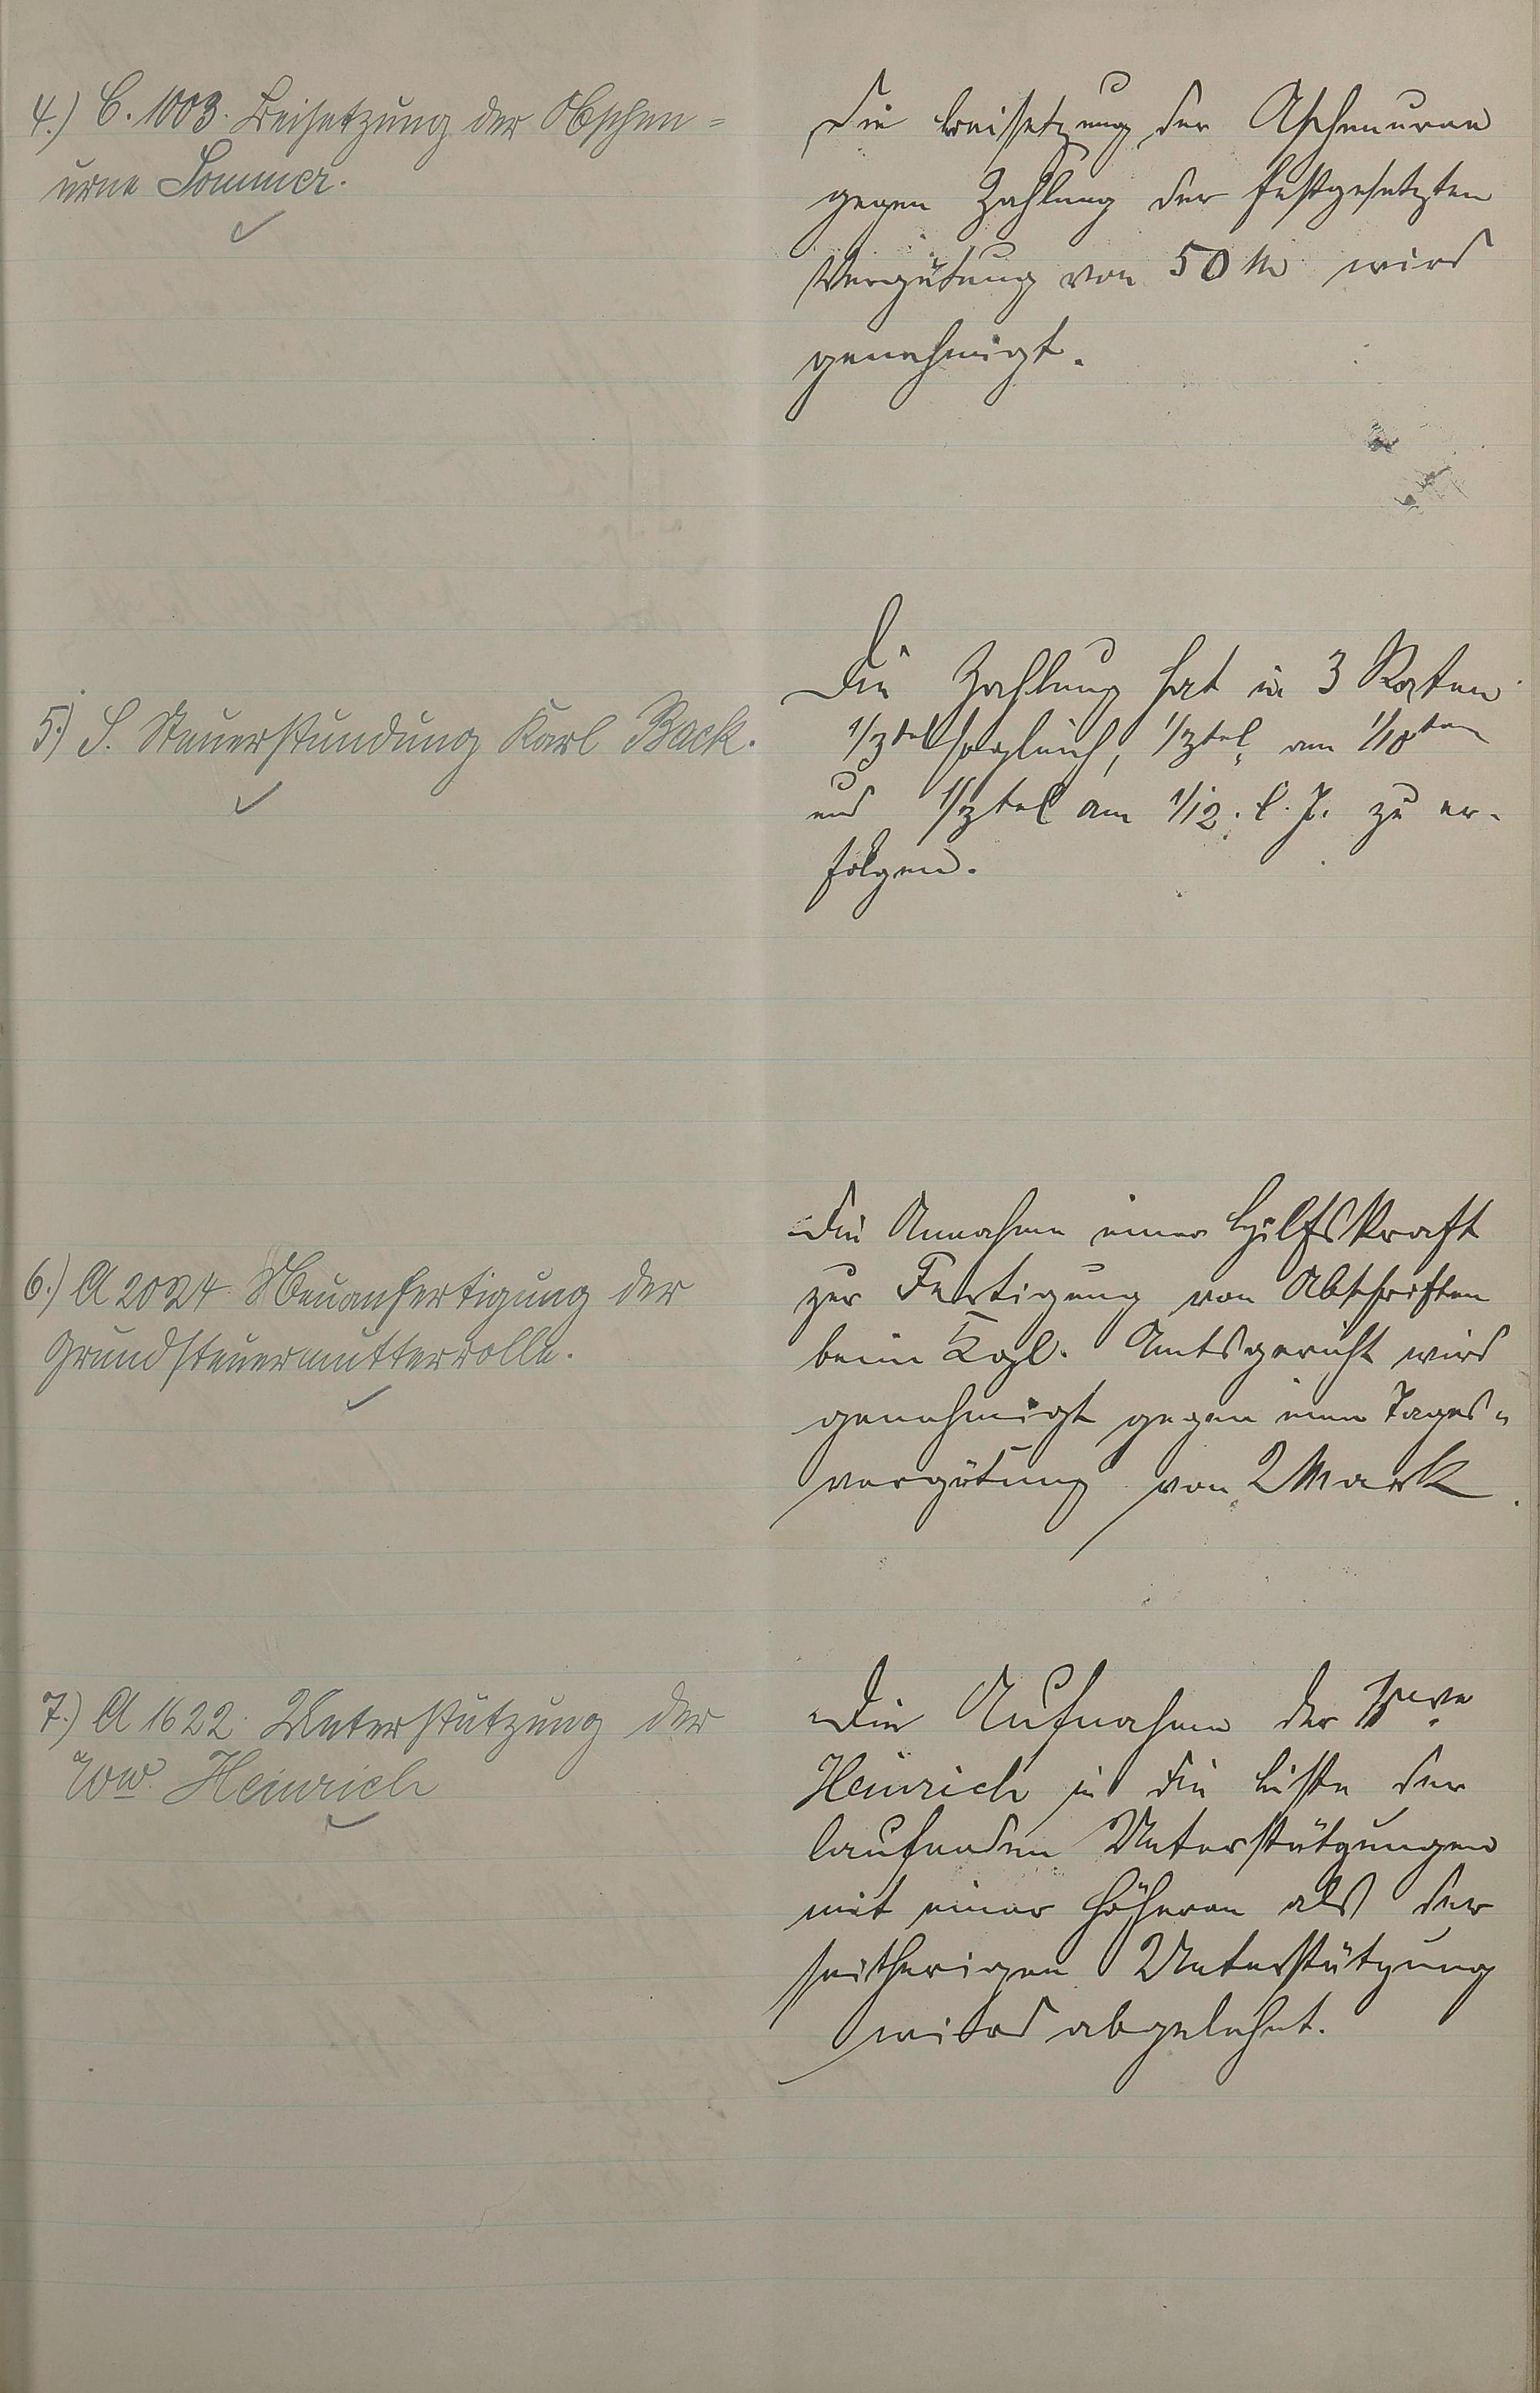 4.) C. 1003. Beisetzung der Aschen=
urne Sommer.
Die Beissetzung der Aschenurne
gegen Zahlung der festgesetzten
Vergütung von 50 M wird
genehmigt.
5.) S. Steuerstundung Karl Back.
Die Zahlung hat in 3 Raten
1/3tel sogleich, 1/3tel am 1/10ten
und 1/3tel am 1/12. l. J. zu er-
folgen.
6.) A 2024. Neuanfertigung der
Grundsteuermutterrolle.
Die Annahme einer Hilfskraft
zur Fertigung von Abschriften
beim Kgl. Amtsgericht wird
genehmigt gegen eine Tages-
vergütung von 2 Mark
7.) A 1622. Unterstützung der
Ww. Heinrich
Die Aufnahme der Wwe
Heinrich in die Liste der
laufenden Unterstützungen
mit einer höheren als der
seitherigen Unterstützung
wird abgelehnt.